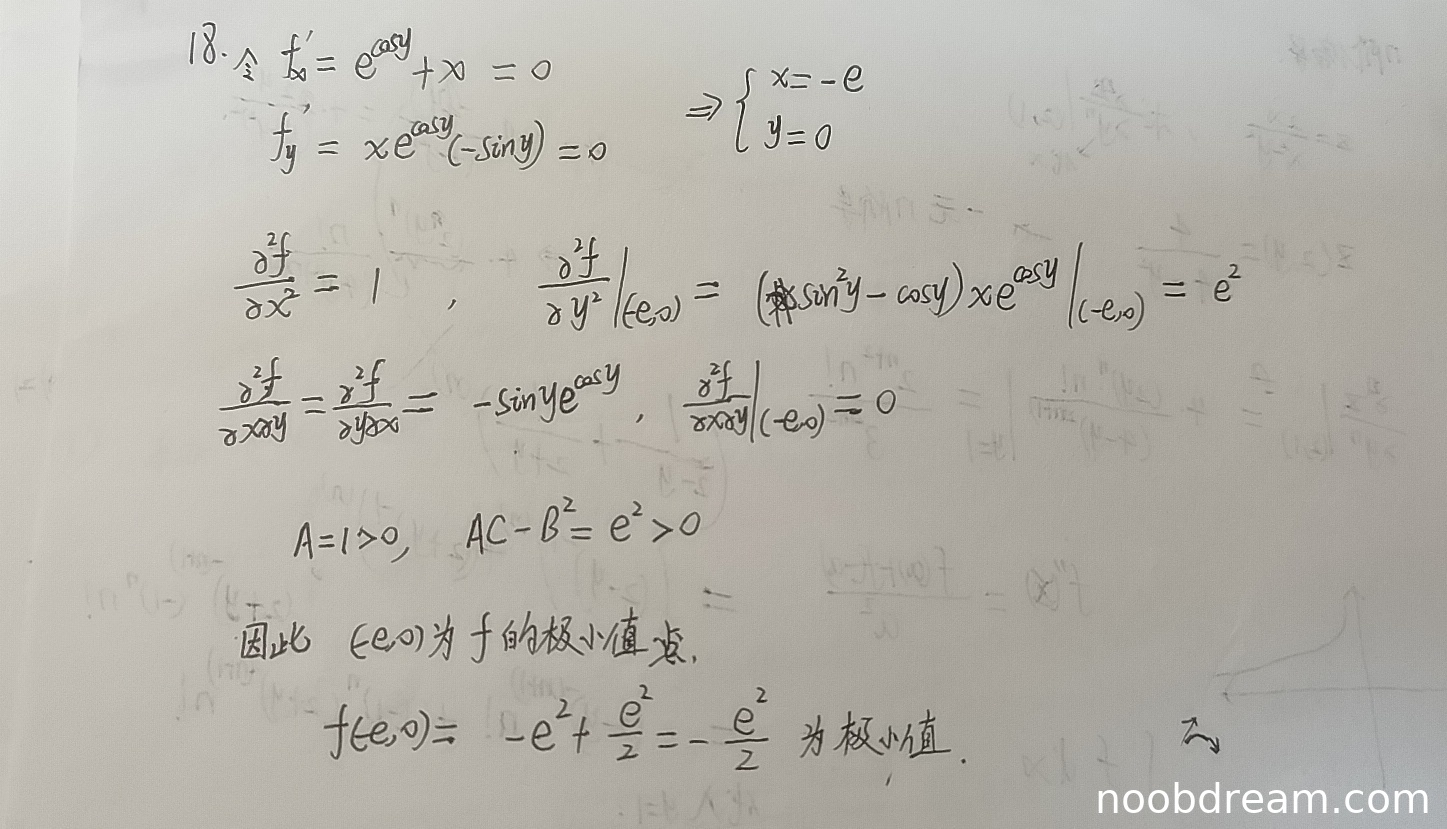 18. 令 f'x = e^cosy + x = 0
f'y = xe^cosy(-siny) = 0
⇒ { x = -e
y = 0
∂²f/∂x² = 1 , ∂²f/∂y²|(-e,0) = (sin²y - cosy)xe^cosy|(-e,0) = e²
∂²f/∂x∂y = ∂²f/∂y∂x = -sinye^cosy , ∂²f/∂x∂y|(-e,0) = 0
A=1>0, AC-B²= e²>0
因此 (-e,0)为f的极小值点.
f(-e,0)= -e²+ e²/2 = - e²/2 为极小值.
noobdream.com